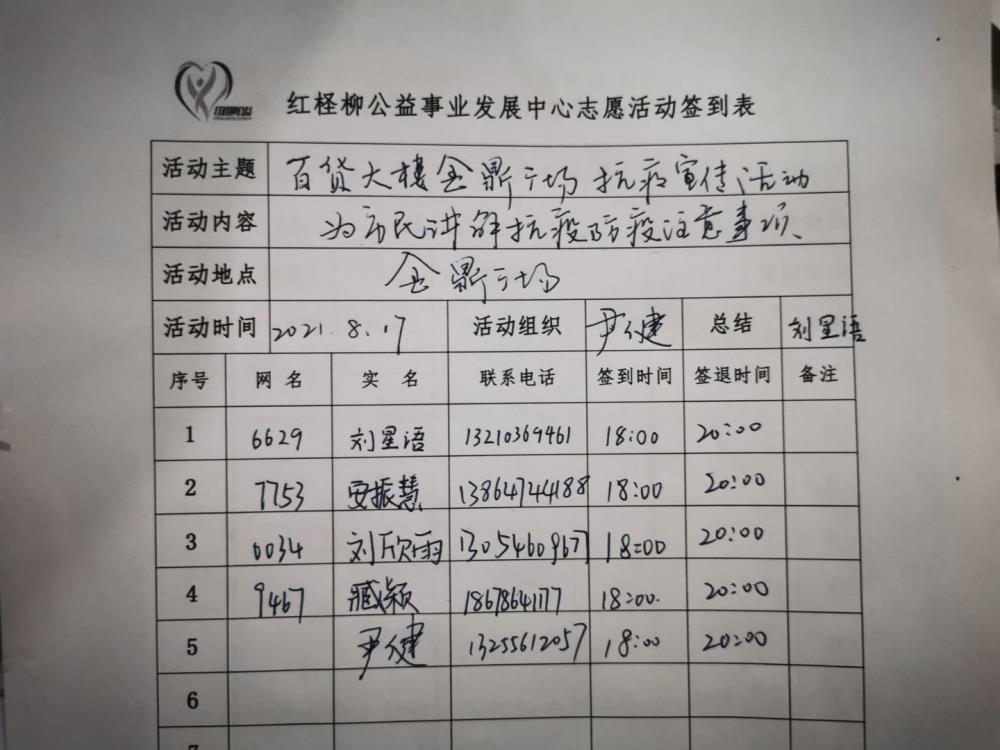 红柽柳公益事业发展中心志愿活动签到表
活动主题 百货大楼金鼎广场抗疫宣传活动
活动内容 为市民讲解抗疫防疫注意事项、
活动地点 金鼎广场
活动时间 2021.8.17 活动组织 尹健 总结 刘星语
序号 网名 实名 联系电话 签到时间 签退时间 备注
1 6629 刘星语 13210369461 18:00 20:00
2 7753 安振慧 13864744188 18:00 20:00
3 0034 刘欣雨 18:00 20:00
4 9467 臧颖 18678641177 18:00. 20:00
5 尹健 13255612057 18:00 20:00
6